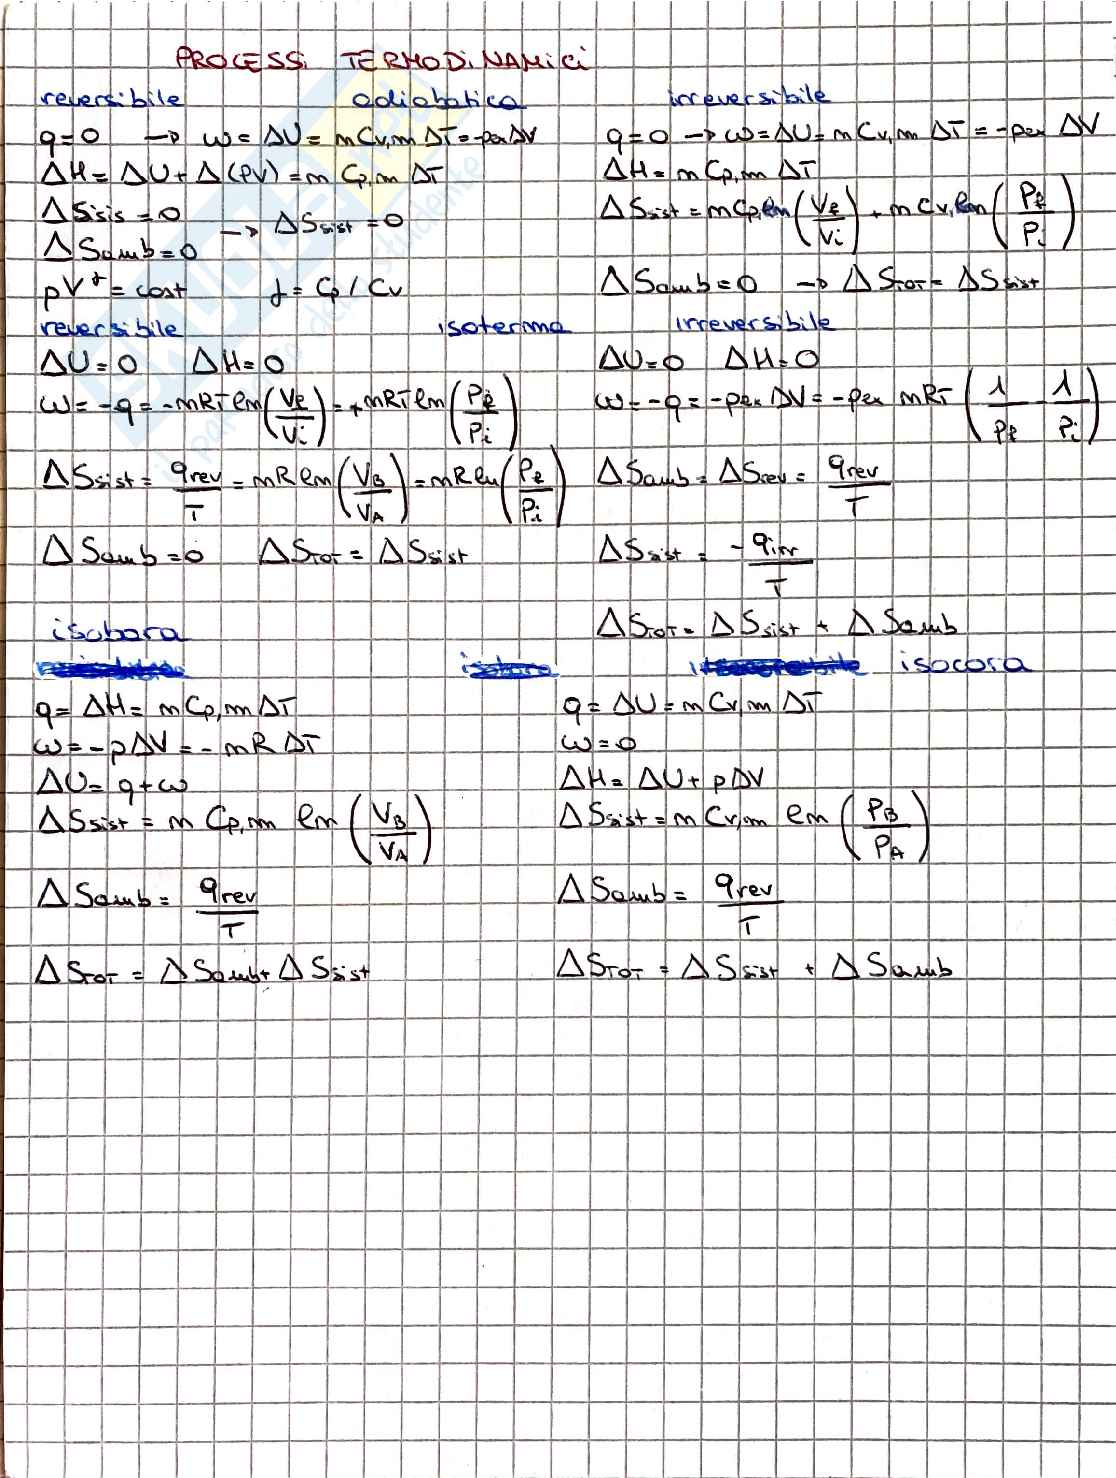 PROCESSI TERMODINAMICI
reversibile adiabatica irreversibile
q=0 → w=ΔU=nCv,mΔT=-pexΔV
ΔH=ΔU+Δ(PV)=nCp,mΔT
ΔSsis=0
→ ΔSsist=0
ΔSamb=0
pV^γ=cost γ=Cp/Cv
q=0 → w=ΔU=nCv,mΔT=-pexΔV
ΔH=nCp,mΔT
ΔSsist=nCp,ln(Vf/Vi)+nCv,ln(Pf/Pi)
ΔSamb=0 → ΔSTOT=ΔSsist
reversibile isoterma irreversibile
ΔU=0 ΔH=0
w=-q=-nRTln(Vf/Vi)=+nRTln(Pf/Pi)
ΔSsist=qrev/T=nRln(VB/VA)=nRln(Pf/Pi)
ΔSamb=0 ΔSTOT=ΔSsist
ΔU=0 ΔH=0
w=-q=-pexΔV=-pex nRT(1/Pf-1/Pi)
ΔSamb=ΔSrev=qrev/T
ΔSsist=-qirr/T
ΔSTOT=ΔSsist+ΔSamb
isobara
isocora
q=ΔH=nCp,mΔT
w=-pΔV=-nRΔT
ΔU=q+w
ΔSsist=nCp,m ln(VB/VA)
ΔSamb=qrev/T
ΔSTOT=ΔSamb+ΔSsist
q=ΔU=nCv,mΔT
w=0
ΔH=ΔU+pΔV
ΔSsist=nCv,m ln(PB/PA)
ΔSamb=qrev/T
ΔSTOT=ΔSsist+ΔSamb